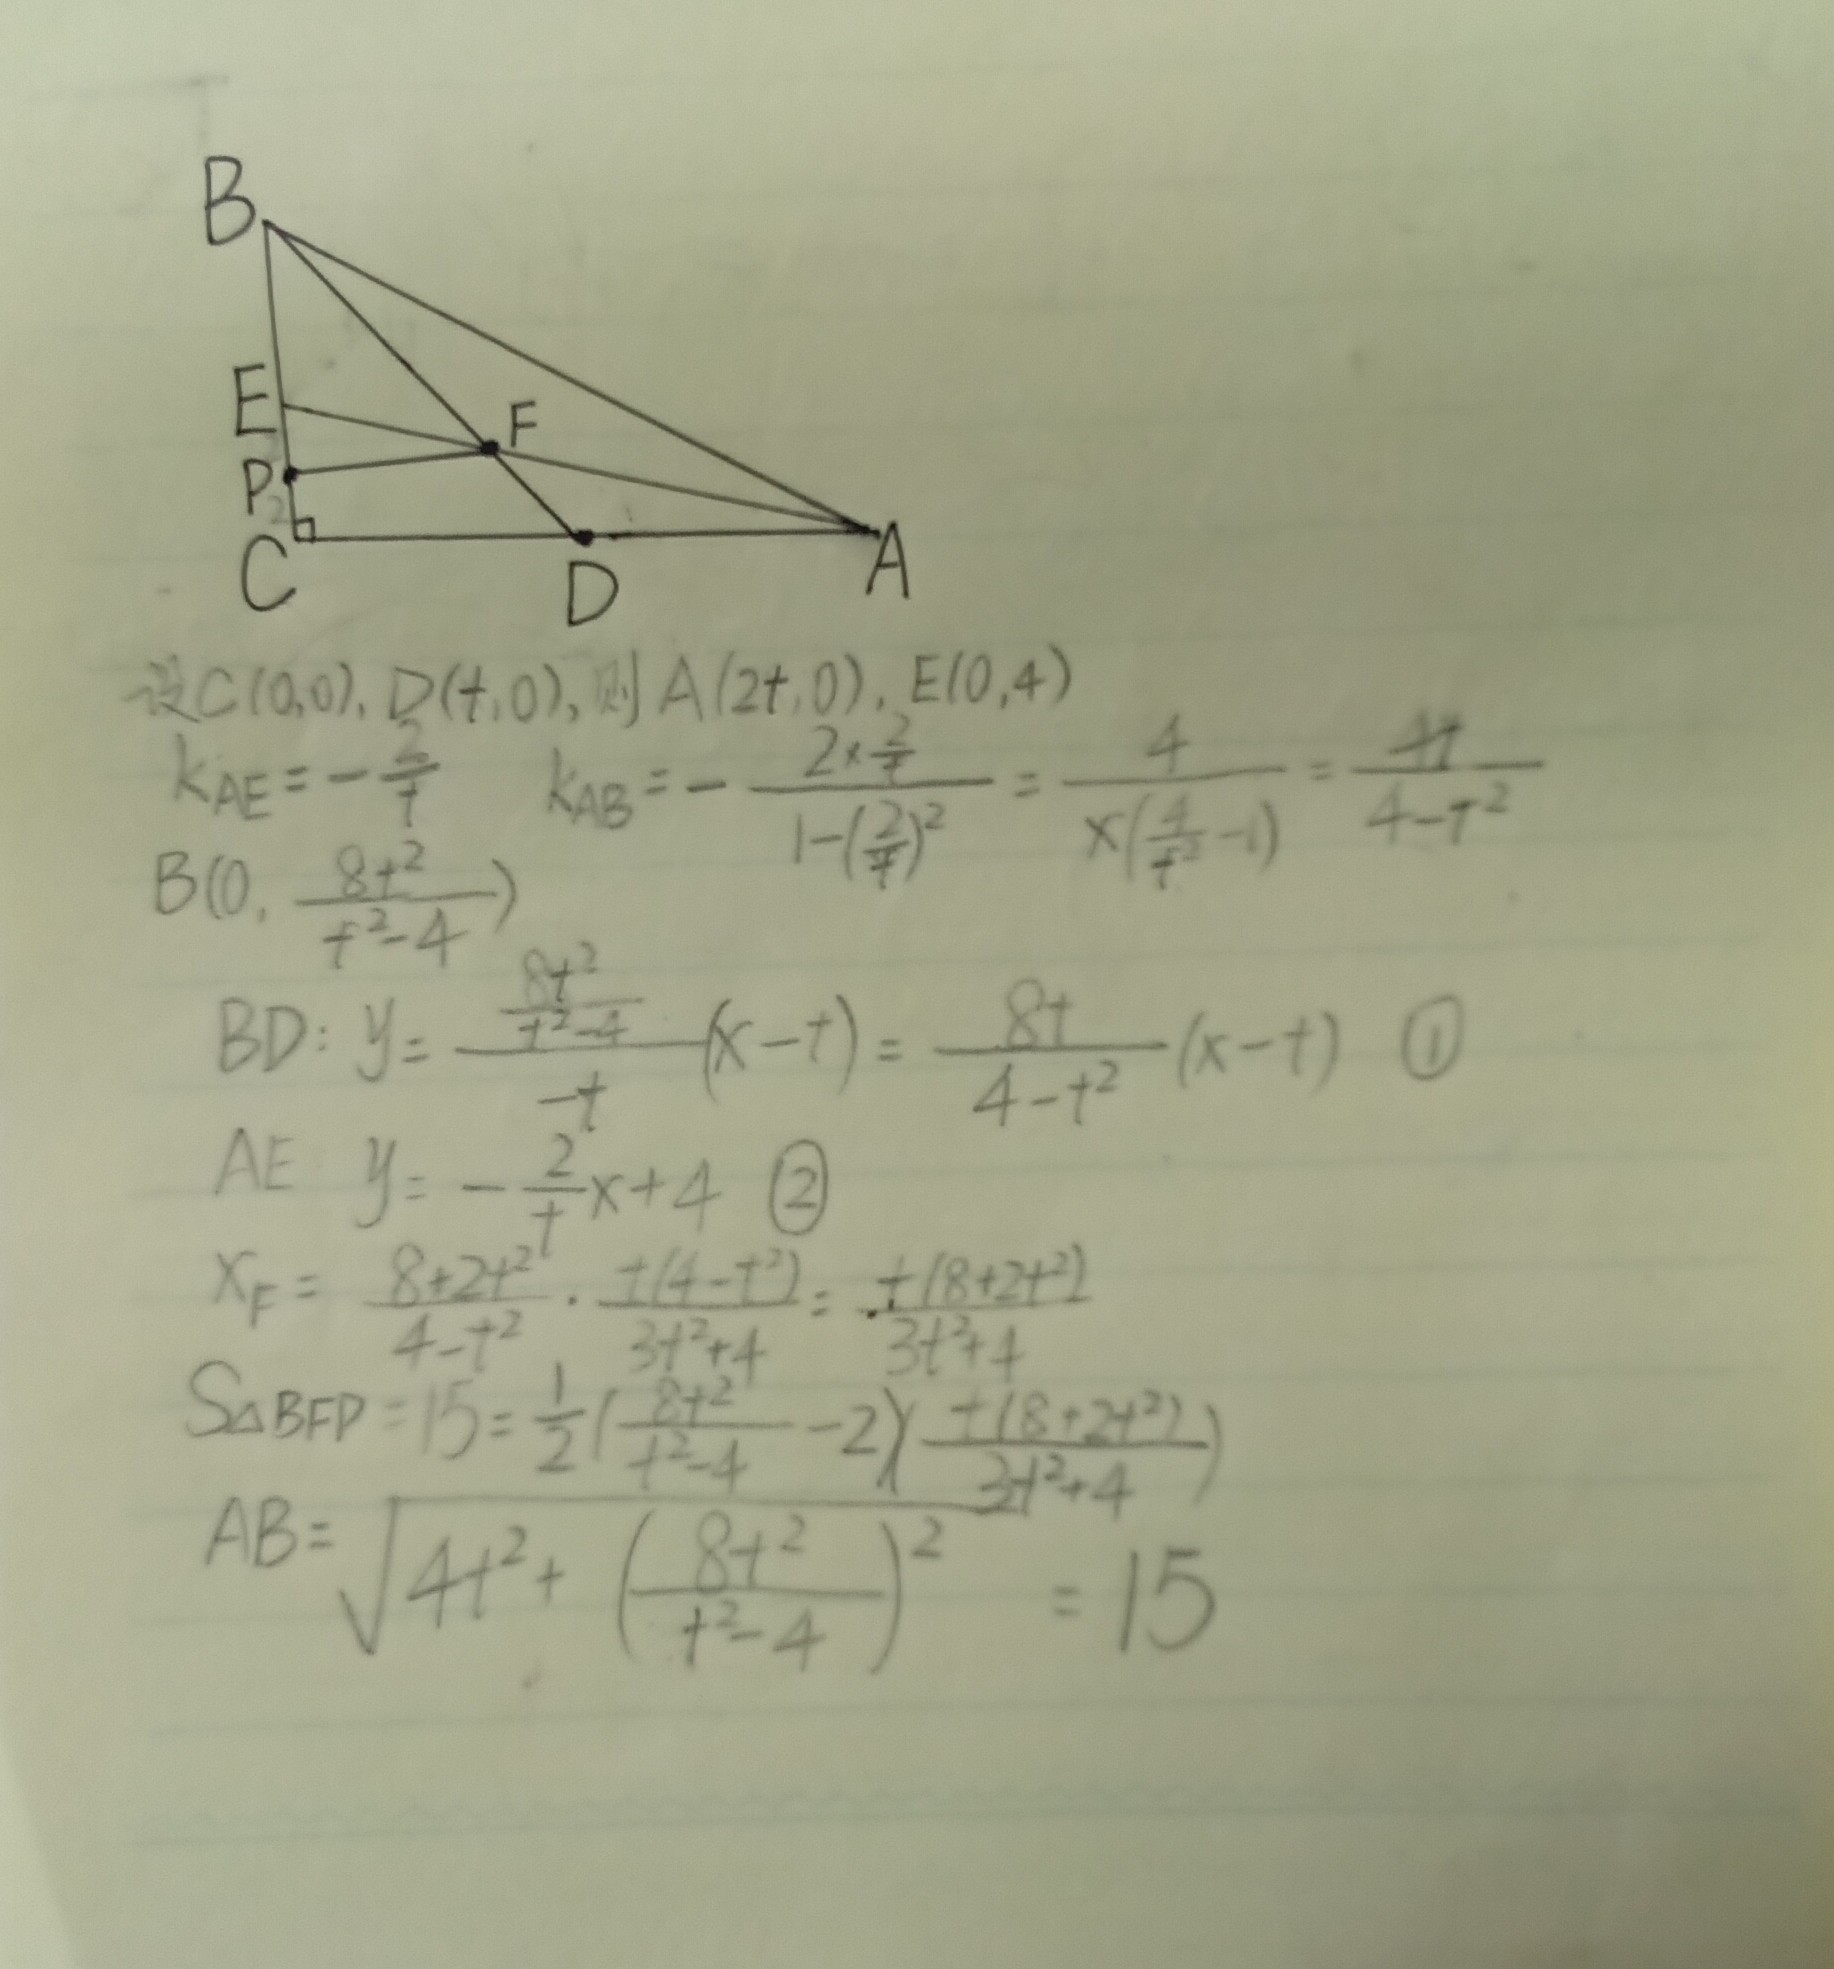 B
E
F
P
2
C
D
A
设C(0,0), D(t,0), 则A(2t,0), E(0,4)
k_AE = -2/t k_AB = -(2×2/t)/(1-(2/t)²) = 4/(x(4/t²-1)) = 4t/(4-t²)
B(0, 8t²/(t²-4))
BD: y = (8t²/(t²-4))/(-t) (x-t) = 8t/(4-t²) (x-t) ①
AE y = -2/t x+4 ②
x_F = (8+2t²)/(4-t²) · t(4-t²)/(3t²+4) = t(8+2t²)/(3t²+4)
S△BFP = 15 = 1/2 (8t²/(t²-4) -2)(t(8+2t²)/(3t²+4))
AB = √(4t²+(8t²/(t²-4))²) = 15